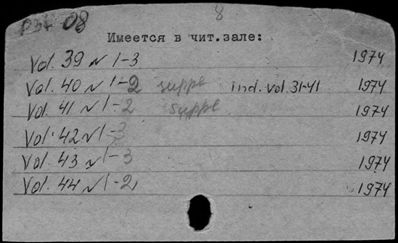 08
8
Имеется в чит. зале:
Vol. 39 N 1-3 1974
Vol. 40 N 1-2 suppl ind. vol. 31-41 1974
Vol. 41 N 1-2 suppl 1974
Vol. 42 N 1-3 1974
Vol. 43 N 1-3 1974
Vol. 44 N 1-2, 1974